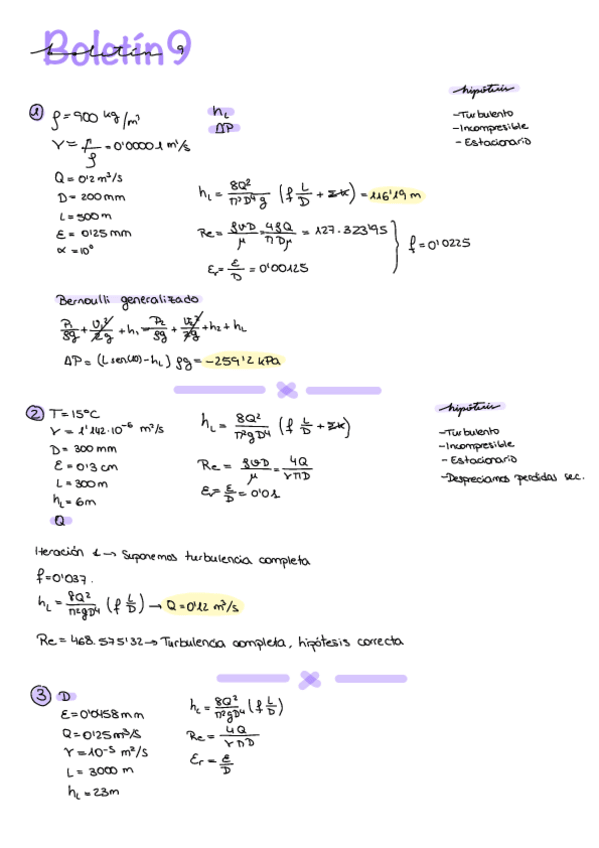 Boletín 9
boletín 9
hipótesis
① ρ = 900 kg/m³
h_L
ΔP
-Turbulento
-Incompresible
- Estacionario
γ = μ/ρ = 0'00001 m²/s
Q = 0'2 m³/s
D = 200 mm
L = 500 m
ε = 0'25 mm
α = 10°
h_L = 8Q²/π²D⁴g (f L/D + Σk) = 116'19 m
Re = ρvD/μ = 4ρQ/πDμ = 127.323'95
f = 0'0225
Er = ε/D = 0'00125
Bernoulli generalizado
P₁/ρg + v₁²/2g + h₁ = P₂/ρg + v₂²/2g + h₂ + h_L
ΔP = (L sen(10) - h_L) ρg = -259'2 kPa
② T = 15°C
γ = 1'142·10⁻⁶ m²/s
D = 300 mm
ε = 0'3 cm
L = 300 m
h_L = 6m
Q
h_L = 8Q²/π²gD⁴ (f L/D + Σk)
Re = ρvD/μ = 4Q/γπD
Er = ε/D = 0'01
hipótesis
-Turbulento
-Incompresible
- Estacionario
-Despreciamos perdidas sec.
Iteración 1 → Suponemos turbulencia completa
f = 0'037.
h_L = 8Q²/π²gD⁴ (f L/D) → Q = 0'12 m³/s
Re = 468.575'32 → Turbulencia completa, hipótesis correcta
③ D
ε = 0'0458 mm
Q = 0'25 m³/s
γ = 10⁻⁵ m²/s
L = 3000 m
h_L = 23m
h_L = 8Q²/π²gD⁴ (f L/D)
Re = 4Q/γπD
Er = ε/D